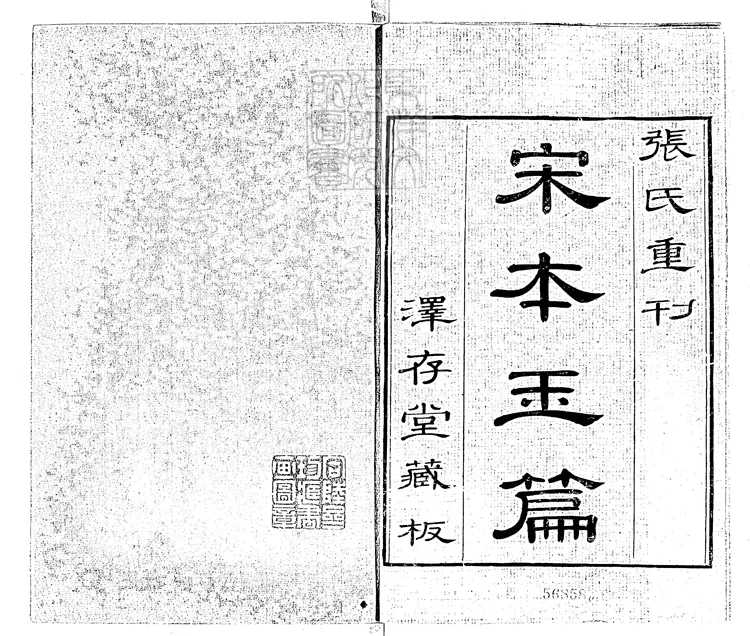 張氏重刊
宋本玉篇
澤存堂藏板
56858